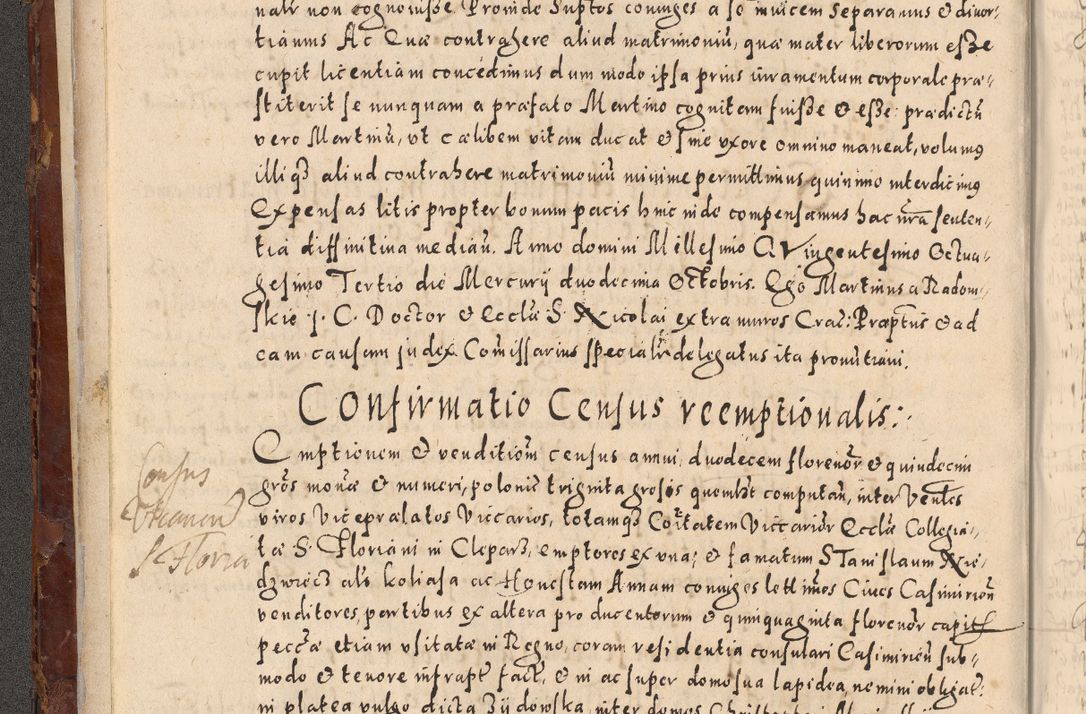 nalr non cognouisse Proinde Suptos coniuges a se inuicem Separamus & diuor-
tiamus Ac Euae contrahere aliud matrimoniū, quae mater liberorum esse
cupit licentiam concedimus dum modo ipsa prius iuramentum corporale prae-
stiterit se nunquam a praefato Martino cognitam fuisse & esse: praedictū
vero Martinū, vt caelibem vitam ducat & sine vxore omnino maneat, volumus
illiq3 aliud contrahere matrimoniū minime permittimus quinimo interdicimus
Expensas litis propter bonum pacis hinc inde compensamus hac nrā senten-
tia diffinitiua mediañ. Anno domini Millesimo Quingentesimo Octua-
gesimo Tertio die Mercurij duodecima Octobris. Ego Martinus a Radom-
skie J. C. Doctor & Ecclīae S. Nicolai extra muros Crac: Praeptus & ad
eam causam judex Comissarius specialr delegatus ita pronūtiaui.
Confirmatio Census reemptionalis:
Emptionem & venditiōm census annui, duodecem florenor & quindecim
grōs monae & numeri, polonic triginta grosos quemlt computan, inter Ventes
viros Vicepralatos Viccarios, totamq3 Cōitatem Viccarior Ecclīae Collegia-
tae S. Floriani in Clepar3, emptores ex vna; & famatum STanislaum Nie-
dzwiecz als koliasa ac Honestam Annam coniuges lettimos Ciues Casimirien
venditores, partibus ex altera pro ducentorum & quinquaginta florenor capitli
peccāe etiam vsitatae in Regno, coram residentia consulari Casimirien sub-
modo & tenore infrapt fact, & in ac super domo sua lapidea, nemini obligat:
in platea vulgo dicta Zijdowska, inter domos
Census
Vicarior
S. Floria